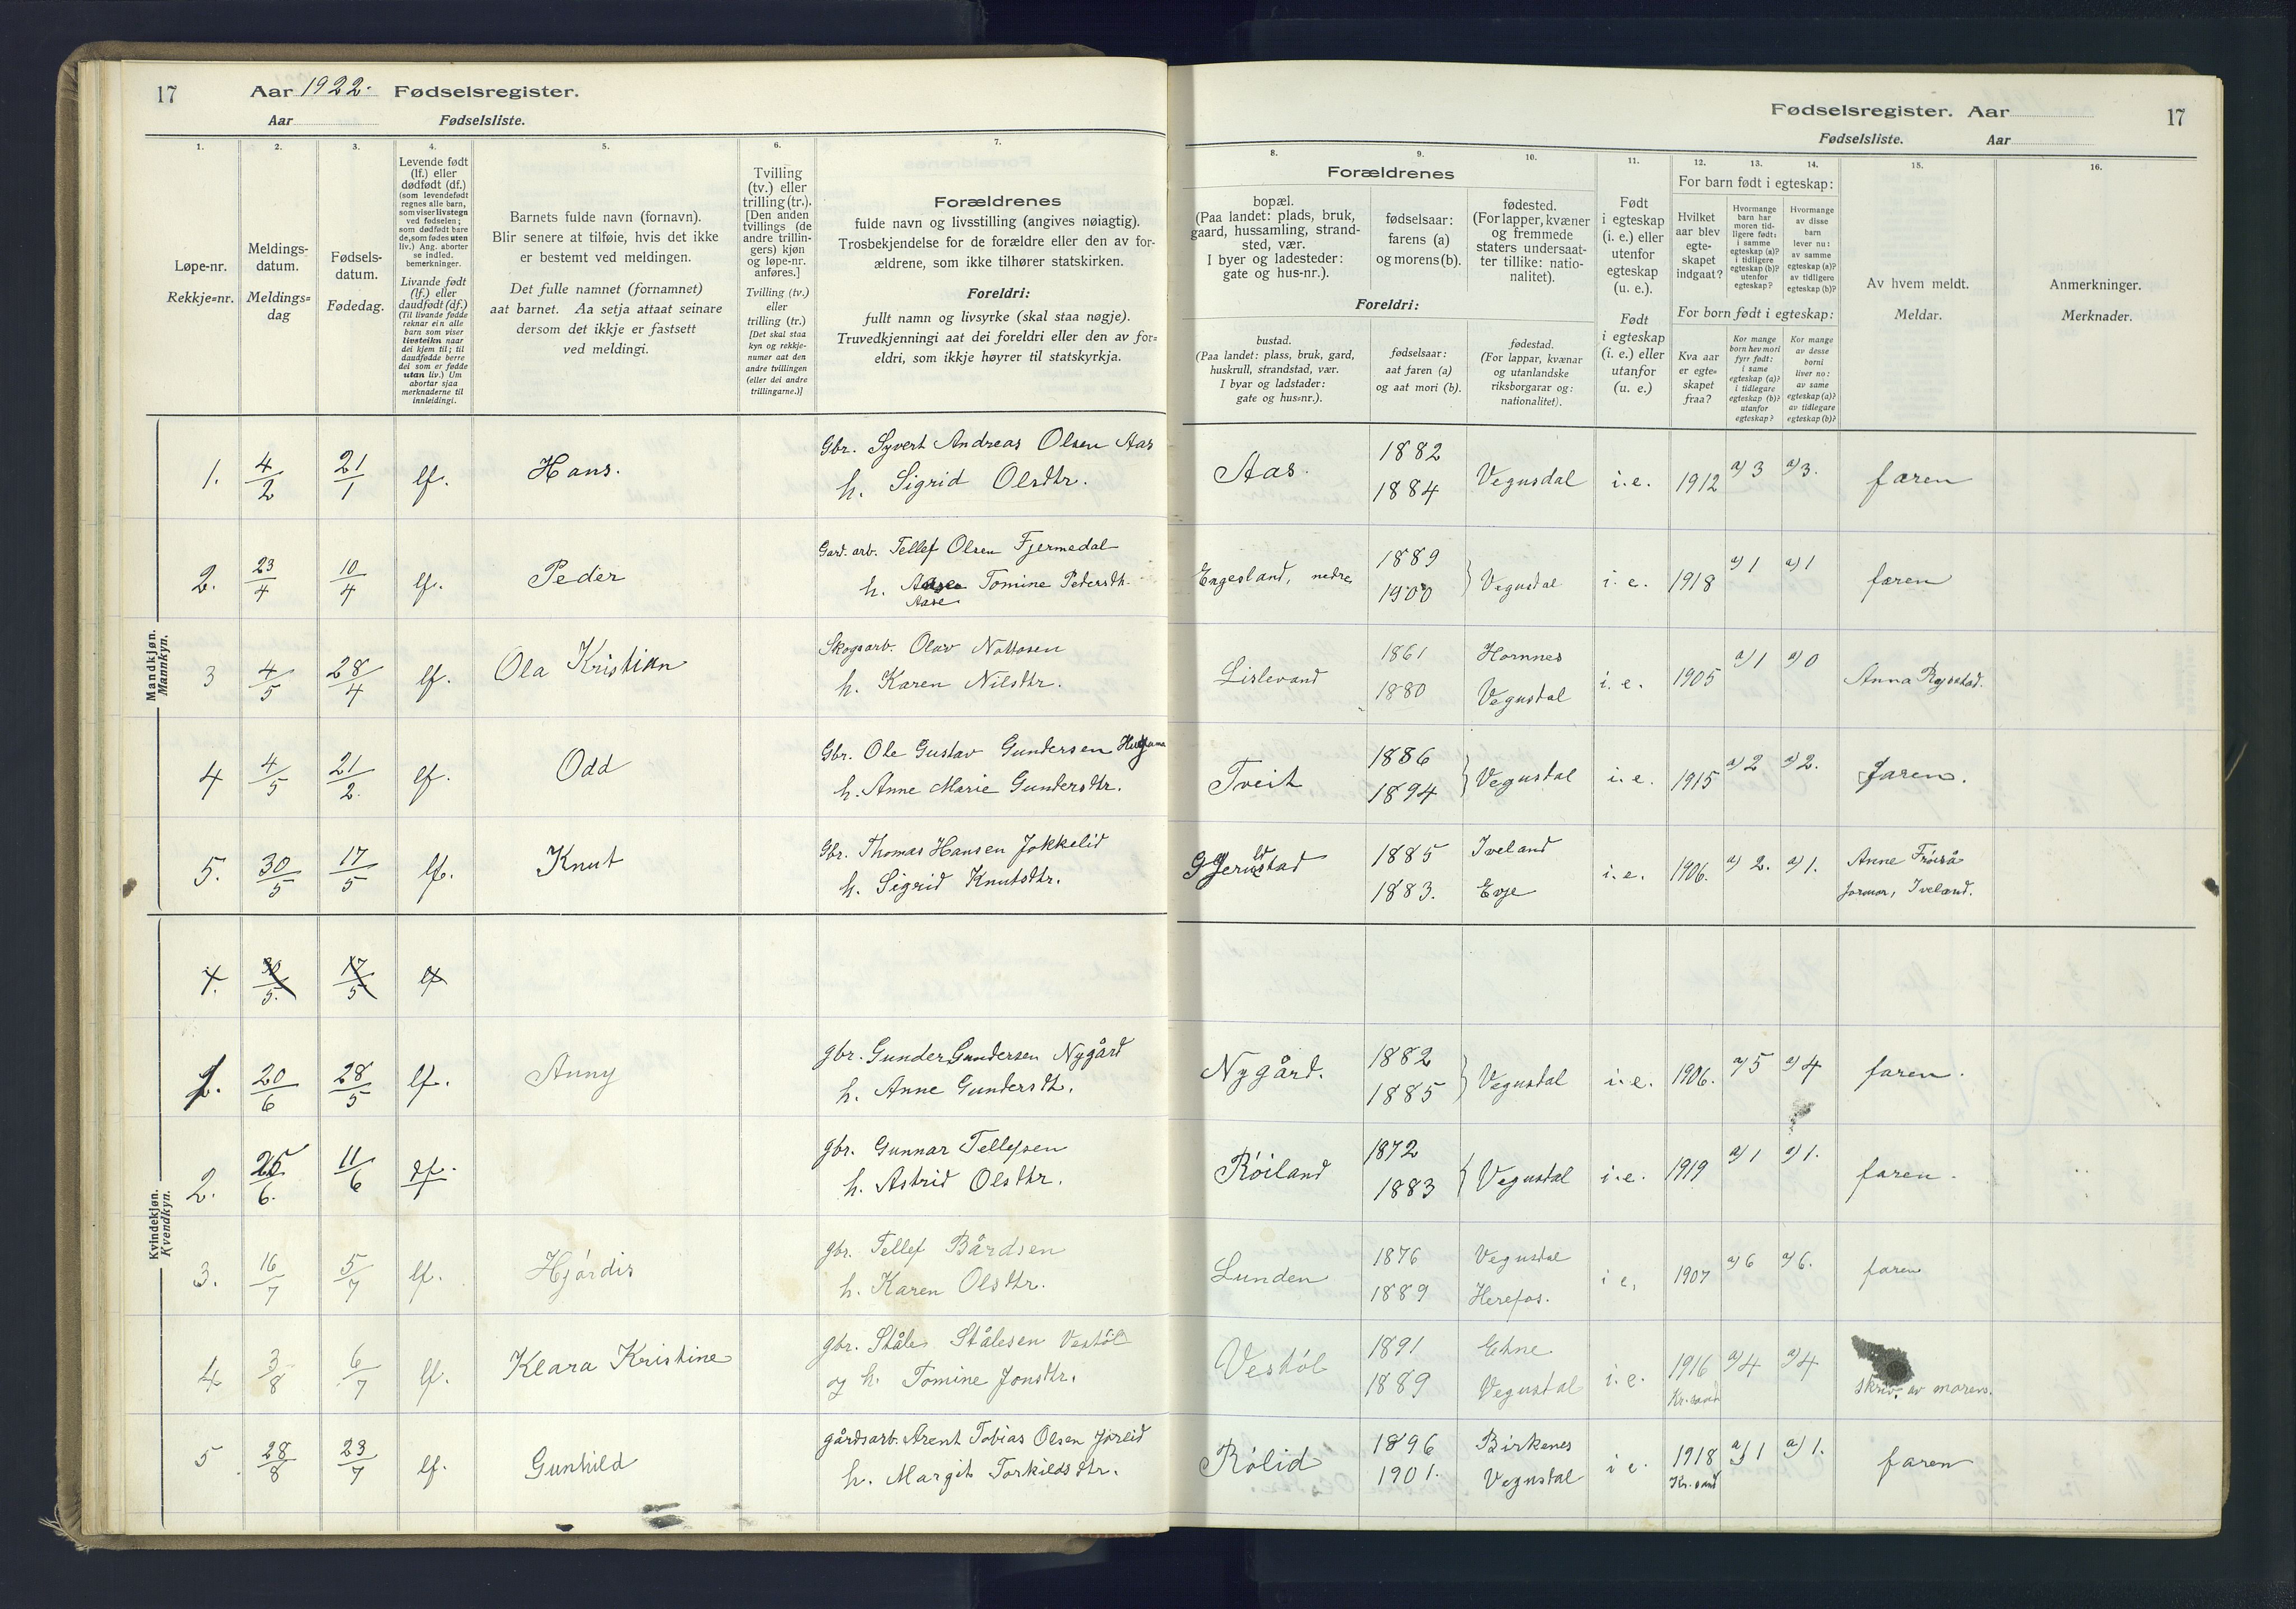 17 Aar 1922. Fødselsregister.
Aar Fødselsliste.
1. 2. 3. 4. 5. 6. 7.
Løpe-nr.
Rekkje=nr.
Meldings-
datum.
Meldings=
dag
Fødsels-
datum.
Fødedag.
Levende født
(lf.) eller
dødfødt (df.)
(som levendefødt
regnes alle barn,
som viser livstegn
ved fødselen;
som dødfødt bare
de, som fødes uten
liv.) Ang. aborter
se indled.
bemerkninger.
Livande født
(lf.) eller
daudfødt (df.)
(Til livande fødde
reknar ein alle
barn som viser
livsteikn naar
dei kjem til; til
daudfødde berre
dei som er fødde
utan liv.) Um
abortar sjaa
merknaderne til
innleidingi.
Barnets fulde navn (fornavn).
Blir senere at tilføie, hvis det ikke
er bestemt ved meldingen.
Det fulle namnet (fornamnet)
aat barnet. Aa setja attaat seinare
dersom det ikkje er fastsett
ved meldingi.
Tvilling
(tv.) eller
trilling (tr.).
[Den anden
tvillings (de
andre trillin-
gers) kjøn
og løpe-nr.
anføres.]
Tvilling (tv.)
eller
trilling (tr.)
[Det skal staa
kyn og rekkje-
numer aat den
andre tvillingen
(eller dei andre
trillingarne.)]
Forældrenes
fulde navn og livsstilling (angives nøiagtig).
Trosbekjendelse for de forældre eller den av for-
ældrene, som ikke tilhører statskirken.
Foreldri:
fullt namn og livsyrke (skal staa nøgje).
Truvedkjenningi aat dei foreldri eller den av for=
eldri, som ikkje høyrer til statskyrkja.
Mandkjøn.
Mannkyn.
1. 4/2 21/1 lf. Hans. Gbr. Syvert Andreas Olsen Aas
h. Sigrid Olsdtr.
2. 23/4 10/4 lf. Peder Gard. arb. Tellef Olsen Fjermedal
h. Aase Tomine Pedersdtr.
Aase
3 4/5 28/4 lf. Ola Kristian Skogsarb. Olav Nottosen
h. Karen Nilsdtr.
4 4/5 21/2. lf. Odd Gbr. Ole Gustav Gundersen
h. Anne Marie Gundersdtr.
5. 30/5 17/5 lf. Knut Gbr. Thomas Hansen Jokkelid
h. Sigrid Knutsdtr.
Kvindekjøn.
Kvendkyn.
1. 30/5. 17/5 lf
1. 20/6 28/5 lf. Anny gbr. Gunder Gundersen Nygård
h. Anne Gundersdtr.
2. 26/6. 11/6 df. gbr. Gunnar Tellefsen
h. Astrid Olsdtr.
3. 16/7 5/7 lf. Hjørdis gbr. Tellef Bårdsen
h. Karen Olsdtr.
4 3/8 6/7 lf. Klara Kristine gbr. Ståle Stålesen Vestøl
og h. Tomine Jonsdtr.
5 28/8 23/7 lf. Gunhild gårdsarb. Arent Tobias Olsen
h. Margit Torkildsdtr.
Fødselsregister. Aar 17
Fødselsliste. Aar
8. 9. 10. 11. 12. 13. 14. 15. 16.
Forældrenes
bopæl.
(Paa landet: plads, bruk,
gaard, hussamling, strand-
sted, vær.
I byer og ladesteder:
gate og hus-nr.).
fødselsaar:
farens (a)
og morens (b).
fødested.
(For lapper, kvæner
og fremmede
staters undersaat-
ter tillike: natio-
nalitet).
Foreldri:
bustad.
(Paa landet: plass, bruk, gard,
huskrull, strandstad, vær.
I byar og ladstader:
gate og hus=nr.).
fødselsaar:
aat faren (a)
og aat mori (b).
fødestad.
(For lappar, kvænar
og utanlandske
riksborgarar og:
nationalitet).
Født
i egteskap
(i. e.) eller
utenfor
egteskap
(u. e.).
Født
i egteskap
(i. e.) eller
utanfor
(u. e.)
For barn født i egteskap:
Hvilket
aar blev
egte-
skapet
indgaat?
Hvormange
barn har
moren tid-
ligere født:
i samme
egteskap (a)?
i tidligere
egteskap (b)?
utenfor
egteskap?
Hvormange
av disse
barn
lever nu:
av samme
egteskap (a)?
av tidligere
egteskap (b)?
For born født i egteskap:
Kva aar
er egte-
skapet
fraa?
Kor mange
born hev mori
fyrr født:
i same
egteskap (a)?
i tidlegare
egteskap (b)?
utanfor
egteskap?
Kor mange
av desse
borni
liver no:
av same
egteskap (a)?
av tidlegare
egteskap (b)?
Av hvem meldt.
Meldar.
Anmerkninger.
Merknader.
Aas. 1882 1884 Vegusdal i. e. 1912 a) 3 a) 3. faren
Engesland, nedre 1889 1900 } Vegusdal i. e. 1918 a) 1 a) 1 faren
Lislevand 1861 Hornnes
1880 Vegusdal i. e. 1905 a) 1 a) 0 Anna Rysstad.
Tveit 1886 1894 } Vegusdal i. e. 1915 a) 2 a) 2. faren.
1885 Iveland
1883. Evje i. e. 1906. a) 2. a) 1. Anne Frøiså
jormor, Iveland.
Nygård. 1882 1885 } Vegusdal i. e. 1906. a) 5 a) 4 faren.
Røiland 1872 1883 { Vegusdal i. e. 1919 a) 1 a) 1. faren.
Lunden 1876 Vegusdal
1889 Herefos. i e. 1907 a) 6 a) 6. faren
Vestøl 1891 Etne
1889 Vegusdal i. e. 1916 a) 4 a) 4
Kr.sand skriv. av moren.
Rølid 1896 Birkenes
1901. Vegusdal i e. 1918 a) 1 a) 1. faren
Kr.sand